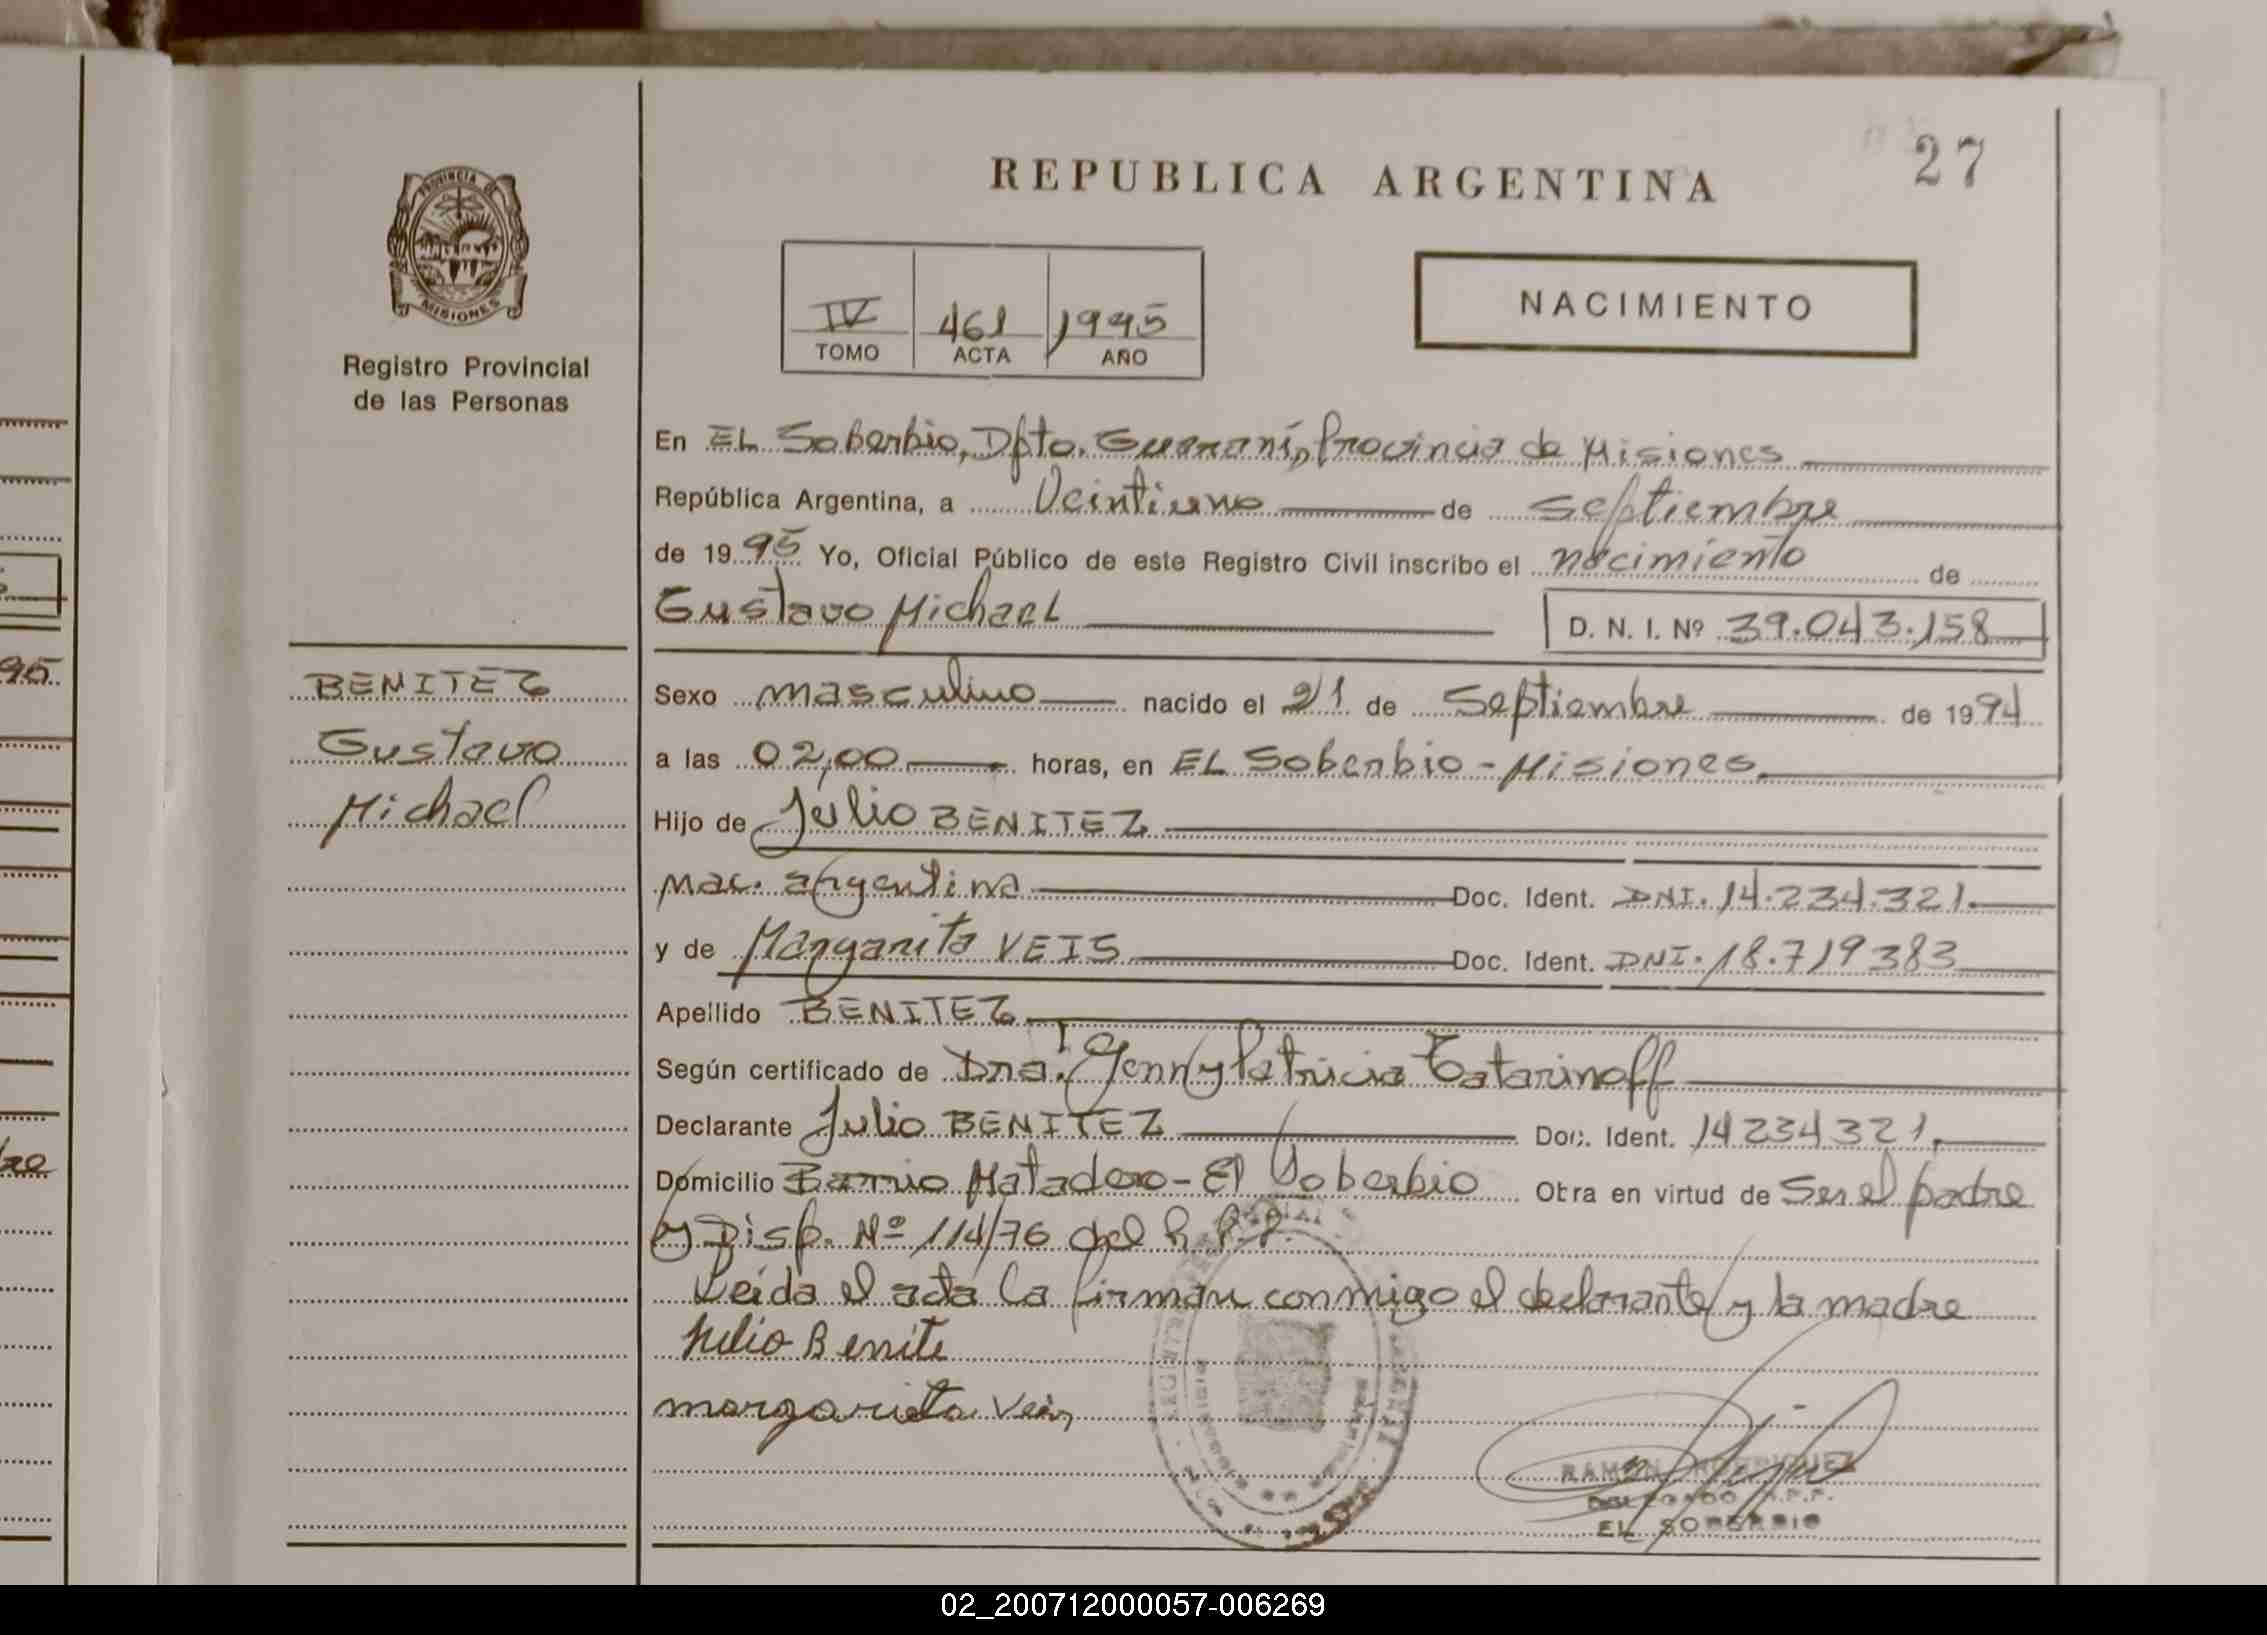 REPUBLICA ARGENTINA
27
PROVINCIA DE
MISIONES
Registro Provincial
de las Personas
IV 461 1995
TOMO ACTA AÑO
NACIMIENTO
En EL Soberbio, Dpto. Guaraní, Provincia de Misiones
República Argentina, a Veintiuno de septiembre
de 1995 Yo, Oficial Público de este Registro Civil inscribo el nacimiento de
Gustavo Michael D. N. I. Nº 39.043.158
BENITEZ
Gustavo
Michael
Sexo masculino nacido el 21 de Septiembre de 1994
a las 02,00 horas, en EL Soberbio - Misiones
Hijo de Julio BENITEZ
Nac. argentina Doc. Ident. DNI. 14.234.321.
y de Margarita VEIS Doc. Ident. DNI. 18.719383
Apellido BENITEZ
Según certificado de Dra. Genny Patricia Tatarinoff
Declarante Julio BENITEZ Doc. Ident. 14234321.
Domicilio Barrio Matadero - El Soberbio Otra en virtud de Ser el padre
y Disp. Nº 114/76 del R.P.P.
Leída el acta la firman conmigo el declarante y la madre
Julio Benite
margarita Veis
RAMON RODRIGUEZ
DELEGADO R.P.P.
EL SOBERBIO
95
02_200712000057-006269